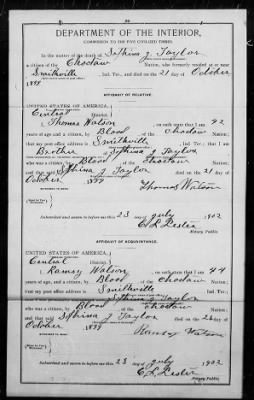 DEPARTMENT OF THE INTERIOR,
COMMISSION TO THE FIVE CIVILIZED TRIBES.
In the matter of the death of Sophina J. Taylor
a citizen of the Choctaw Nation, who formerly resided at or near
Smithville, Ind. Ter., and died on the 21 day of October
1899
AFFIDAVIT OF RELATIVE.
UNITED STATES OF AMERICA,
Central District.
I, Thomas Watson, on oath state that I am 42
years of age and a citizen, by Blood of the Choctaw Nation;
that my post office address is Smithville, Ind. Ter.; that I am
Brother of Sophina J. Taylor
who was a citizen, by Blood, of the Choctaw Nation;
and that said Sophina J. Taylor died on the 21 day of
October 1899
Thomas Watson
Subscribed and sworn to before me this 23 July 1902
C L Lester
Notary Public.
AFFIDAVIT OF ACQUAINTANCE.
UNITED STATES OF AMERICA,
Central District.
I, Ramsey Watson, on oath state that I am 44
years of age, and a citizen, by Blood of the Choctaw Nation;
that my post office address is Smithville, Ind. Ter.;
Sophina J Taylor
who was a citizen, by Blood, of the Choctaw Nation;
and that said Sophina J Taylor died on the 21 day of
October 1899
Ramsey Watson
Subscribed and sworn to before me this 23 July 1902
C L Lester
Notary Public.